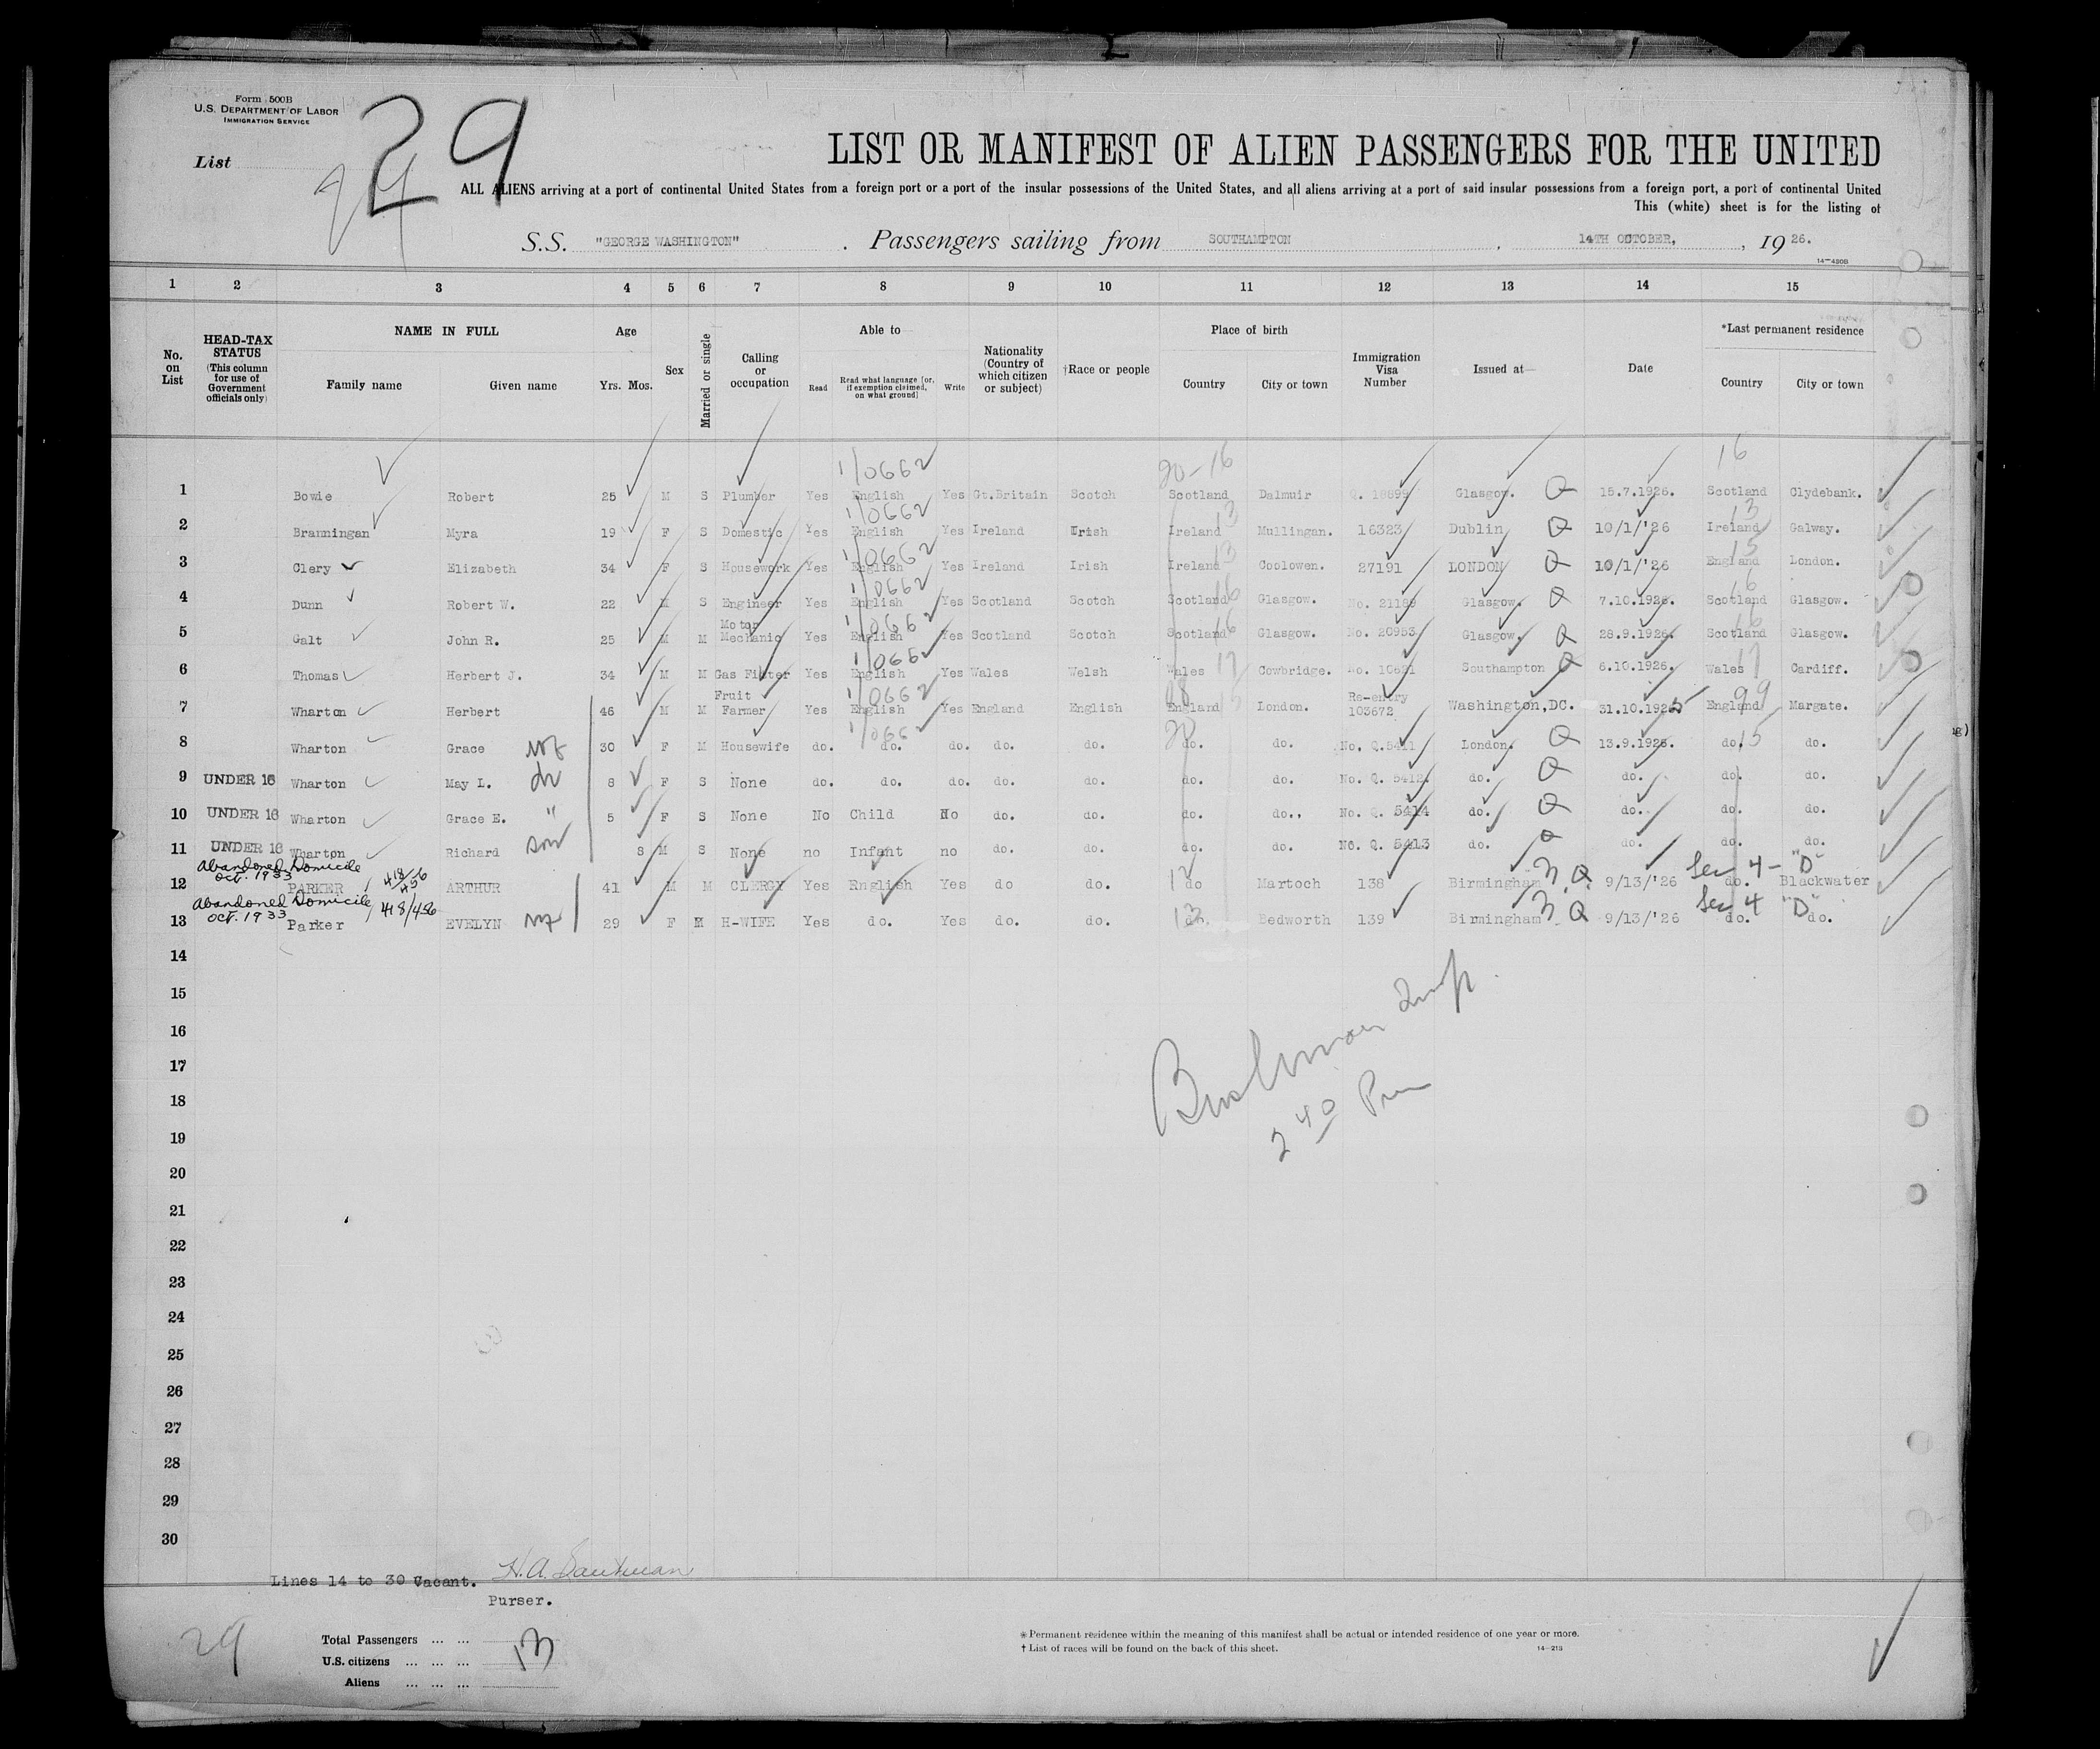 Form 500B
U.S. DEPARTMENT OF LABOR
IMMIGRATION SERVICE
29
List
LIST OR MANIFEST OF ALIEN PASSENGERS FOR THE UNITED
ALL ALIENS arriving at a port of continental United States from a foreign port or a port of the insular possessions of the United States, and all aliens arriving at a port of said insular possessions from a foreign port, a port of continental United
This (white) sheet is for the listing of
S.S. "GEORGE WASHINGTON" . Passengers sailing from SOUTHAMPTON , 14TH OCTOBER, , 19 26.
14-480B
1 2 3 4 5 6 7 8 9 10 11 12 13 14 15
No. on List
HEAD-TAX STATUS (This column for use of Government officials only)
NAME IN FULL Family name Given name
Age Yrs. Mos.
Sex
Married or single
Calling or occupation
Able to Read Read what language [or, if exemption claimed, on what ground] Write
Nationality (Country of which citizen or subject)
†Race or people
Place of birth Country City or town
Immigration Visa Number
Issued at
Date
*Last permanent residence Country City or town
1/0662 20-16 16
1 Bowie Robert 25 M S Plumber Yes English Yes Gt.Britain Scotch Scotland Dalmuir Q. 18899 Glasgow. Q 15.7.1926. Scotland Clydebank.
1/0662 13 13
2 Branningan Myra 19 F S Domestic Yes English Yes Ireland Irish Ireland Mullingan. 16323 Dublin Q 10/1/'26 Ireland Galway.
1/0662 13 15
3 Clery Elizabeth 34 F S Housework Yes English Yes Ireland Irish Ireland Coolowen. 27191 LONDON Q 10/1/'26 England London.
1/0662 16 16
4 Dunn Robert W. 22 M S Engineer Yes English Yes Scotland Scotch Scotland Glasgow. No. 21189 Glasgow. Q 7.10.1926. Scotland Glasgow.
1/0662 16 16
5 Galt John R. 25 M M Motor Mechanic Yes English Yes Scotland Scotch Scotland Glasgow. No. 20953 Glasgow. Q 28.9.1926. Scotland Glasgow.
1/066 17 17
6 Thomas Herbert J. 34 M M Gas Fitter Yes English Yes Wales Welsh Wales Cowbridge. No. 10621 Southampton Q 6.10.1926. Wales Cardiff.
1/0662 15 99
7 Wharton Herbert 46 M M Fruit Farmer Yes English Yes England English England London. Re-entry 103672 Washington,DC. 31.10.1925 England Margate.
1/066 20 15
8 Wharton Grace wf 30 F M Housewife do. do. do. do. do. do. do. No. Q.5411 London. Q 13.9.1926. do. do.
9 UNDER 16 Wharton May L. dr 8 F S None do. do. do. do. do. do. do. No. Q. 5412. do. Q do. do. do.
10 UNDER 16 Wharton Grace E. " 5 F S None No Child No do. do. do. do., No. Q. 5414 do. Q do. do. do.
11 UNDER 16 Wharton Richard son 8 M S None no Infant no do. do. do. do. No. Q. 5413 do. Q do. do. do.
Abandoned Domicile
Oct. 1933
12 PARKER ARTHUR 41 M M CLERGY Yes English Yes do do. do Martoch 138 Birmingham N.Q. 9/13/'26 Sec 4-"D" do. Blackwater
Abandoned Domicile
Oct. 1933 418/456
13 Parker EVELYN wf 29 F M H-WIFE Yes do. Yes do. do. do. Bedworth 139 Birmingham N Q 9/13/'26 Sec 4 "D" do. do.
14
15
16
17
18
19
20
21
22
23
24
25
26
27
28
29
30
2 40 Pm
Lines 14 to 30 Vacant.
Purser.
29
Total Passengers ... ...
U.S. citizens ... ... ... 13
Aliens ... ... ...
* Permanent residence within the meaning of this manifest shall be actual or intended residence of one year or more.
† List of races will be found on the back of this sheet.
14-213